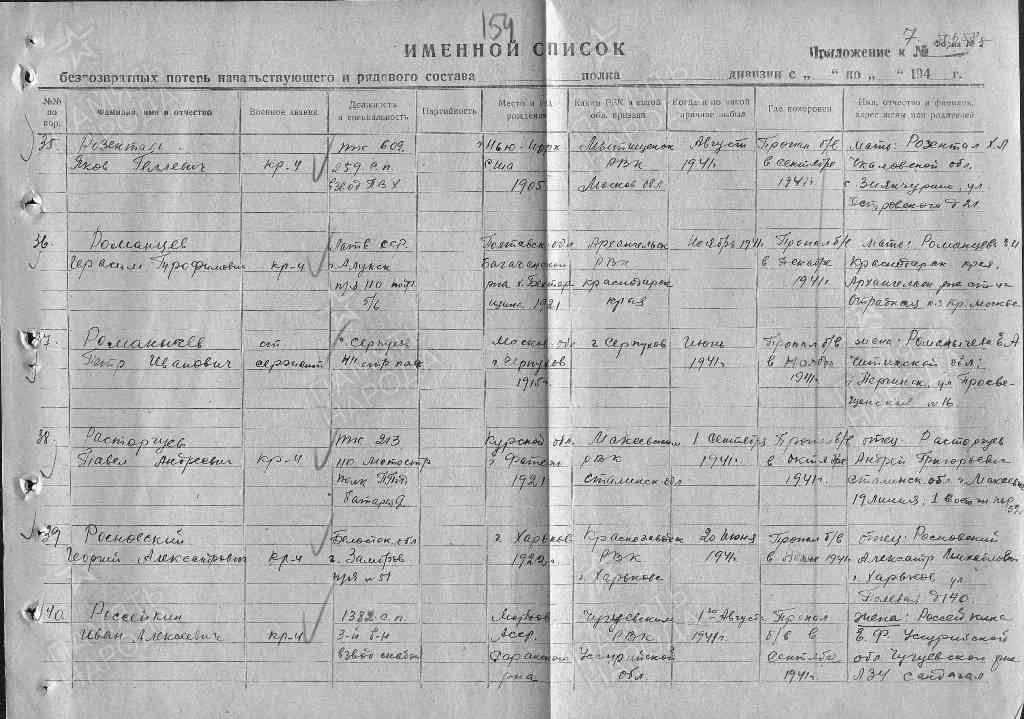 154
ИМЕННОЙ СПИСОК
7.
Приложение к №
Форма № 2
безвозвратных потерь начальствующего и рядового состава полка дивизии с „ “ по „ “ 194 г.
№№ по пор.
Фамилия, имя и отчество
Военное звание
Должность и специальность
Партийность
Место и год рождения
Каким РВК и какой обл. призван
Когда и по какой причине выбыл
Где похоронен
Имя, отчество и фамилия, адрес жены или родителей
35. Розенталь п/я 609. г. Нью-Йорк Мытищенск Август Пропал б/в мать: Розентал Х.Л
Яков Геллевич кр-ц 259 с.п. США РВК 1941г. в сентябре Чкаловской обл.
взвод ПВХ 1905 Москов обл. 1941г. с. Зиянчурино, ул.
Островского д 21
36. Романцев Латв. ССР. Полтавск. обл Архангельск Ноябрь 1941г. Пропал б/в мать: Романцева
Герасим Трофимович кр-ц РВК в декабре Краснодарск края,
п/я 110 1941г. Архангельск р-на ст-ца
б/б 1921 края Отрадная
37. Романычев ст. г. Серпухов Москов. обл г. Серпухов Июнь Пропал б/в жена: Романычева Е.А
Петр Иванович сержант стр полк г. Серпухов 1941г. в Ноябре Читинской обл.
1915г. 1941г. г. Нерчинск, ул Просве-
щенская № 16.
38. Расторгуев п/я 213 Курской обл. Макеевским 1 Сентября Пропал б/в отец: Расторгуев
Павел Андреевич кр-ц 110 мотостр г. Фатеж РВК 1941г. в октябре Андрей Григорьевич
полк ПТО 1921 Сталинск обл 1941г. Сталинск. обл. г. Макеевка
батарея 19 линия, 1 Восточ пер
39 Росновский Белосток. обл г. Харьков Краснозаводск 20 Июня Пропал б/в отец: Росновский
Георгий Александрович кр-ц г. Замбров 1922г. РВК 1941г. в Июне 1941г Александр Михайлович
п/я № 51 г. Харькове г. Харьков ул
Полевая д 140.
40. Россейкин 1382 с.п. Мордов Чугуевским 1го Августа Пропал жена: Россейкина
Иван Алексеевич кр-ц 3-й б-н Асср. РВК 1941г. б/в в Е. Ф. Уссурийской
взвод снабж Саранского Уссурийской сентябре обл. Чугуевского р-на
р-на обл. 1941г. ЛЗУ Сандагал